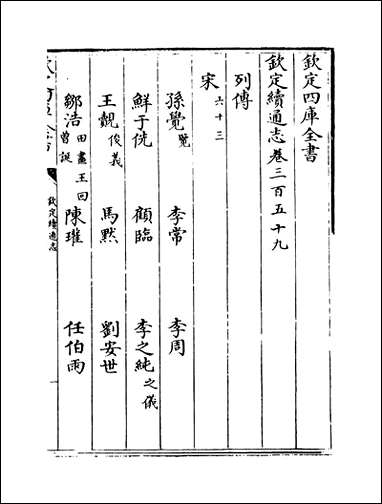 欽定四庫全書
欽定續通志卷三百五十九
列傳
宋 六十三
孫覺 覽 李常 李周
鮮于侁 顧臨 李之純 之儀
王覿 俊義 馬默 劉安世
鄒浩 田晝 王回 曾誕 陳瓘 任伯雨
欽定續通志
一